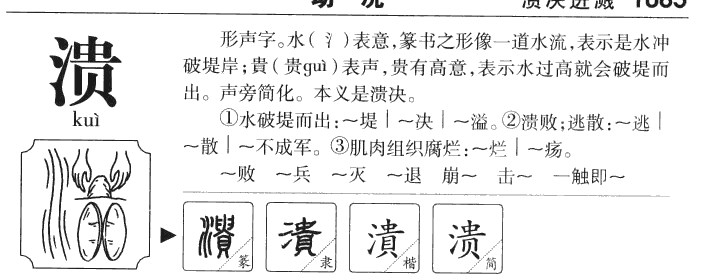 溃决迸溅 1683
溃
kuì
形声字。水(氵)表意,篆书之形像一道水流,表示是水冲
破堤岸;貴(贵guì)表声,贵有高意,表示水过高就会破堤而
出。声旁简化。本义是溃决。
①水破堤而出:～堤｜～决｜～溢。②溃败;逃散:～逃｜
～散｜～不成军。③肌肉组织腐烂:～烂｜～疡。
～败 ～兵 ～灭 ～退 崩～ 击～ 一触即～
潰 篆
潰 隶
潰 楷
溃 简